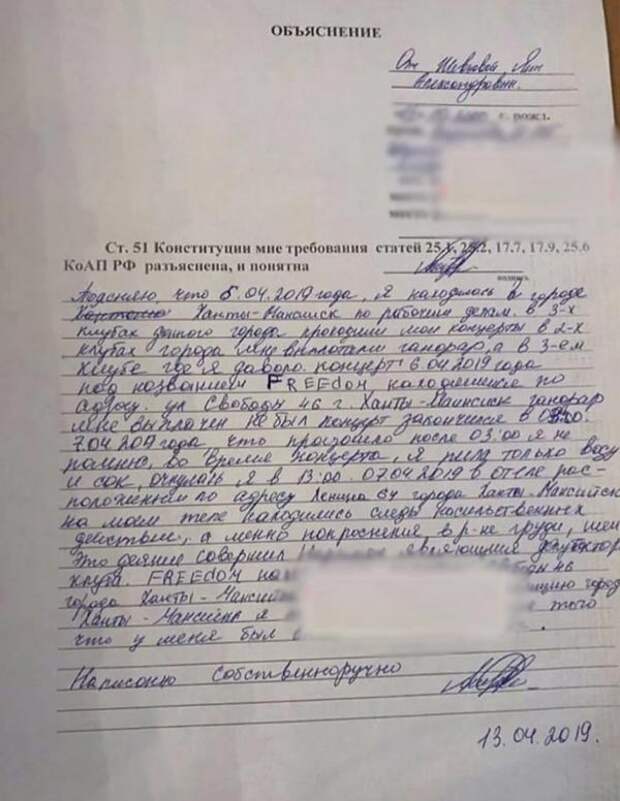 ОБЪЯСНЕНИЕ
От Шевовой Яни
Александровны.
г. рожд.
Ст. 51 Конституции мне требования статей 25.1, 25.2, 17.7, 17.9, 25.6
КоАП РФ разъяснена, и понятна
подпись
Поясняю, что 5.04.2019 года, я находилась в городе
Ханты-Мансийск по рабочим делам. в 3-х
клубах данного города проходили мои концерты в 2-х
клубах города мне выплотили ганорар, а в 3-ем
клубе где я даволо. концерт 6.04.2019 года
под названием FREEdom находящееся по
адресу. ул Свободы 46 г. Ханты-Мансийск ганорар
мне выплачен не был концерт закончился в
7.04.2019 года, что произошло после 03:00 я не
помню, во время концерта, я пила только воду
и сок, очнулась я в 13:00. 07.04.2019 в отеле рас-
положенном по адресу Ленина 64 города Ханты-Мансийск
на моем теле находились следы насильственных
действий, а менно покроснения в р-не груди, шеи
Это деяние совершил являющийся
клуба. FREEdom
города Ханты-Мансийск
Ханты-Мансийска я того
что у меня был
Написонно собственноручно
13.04.2019.